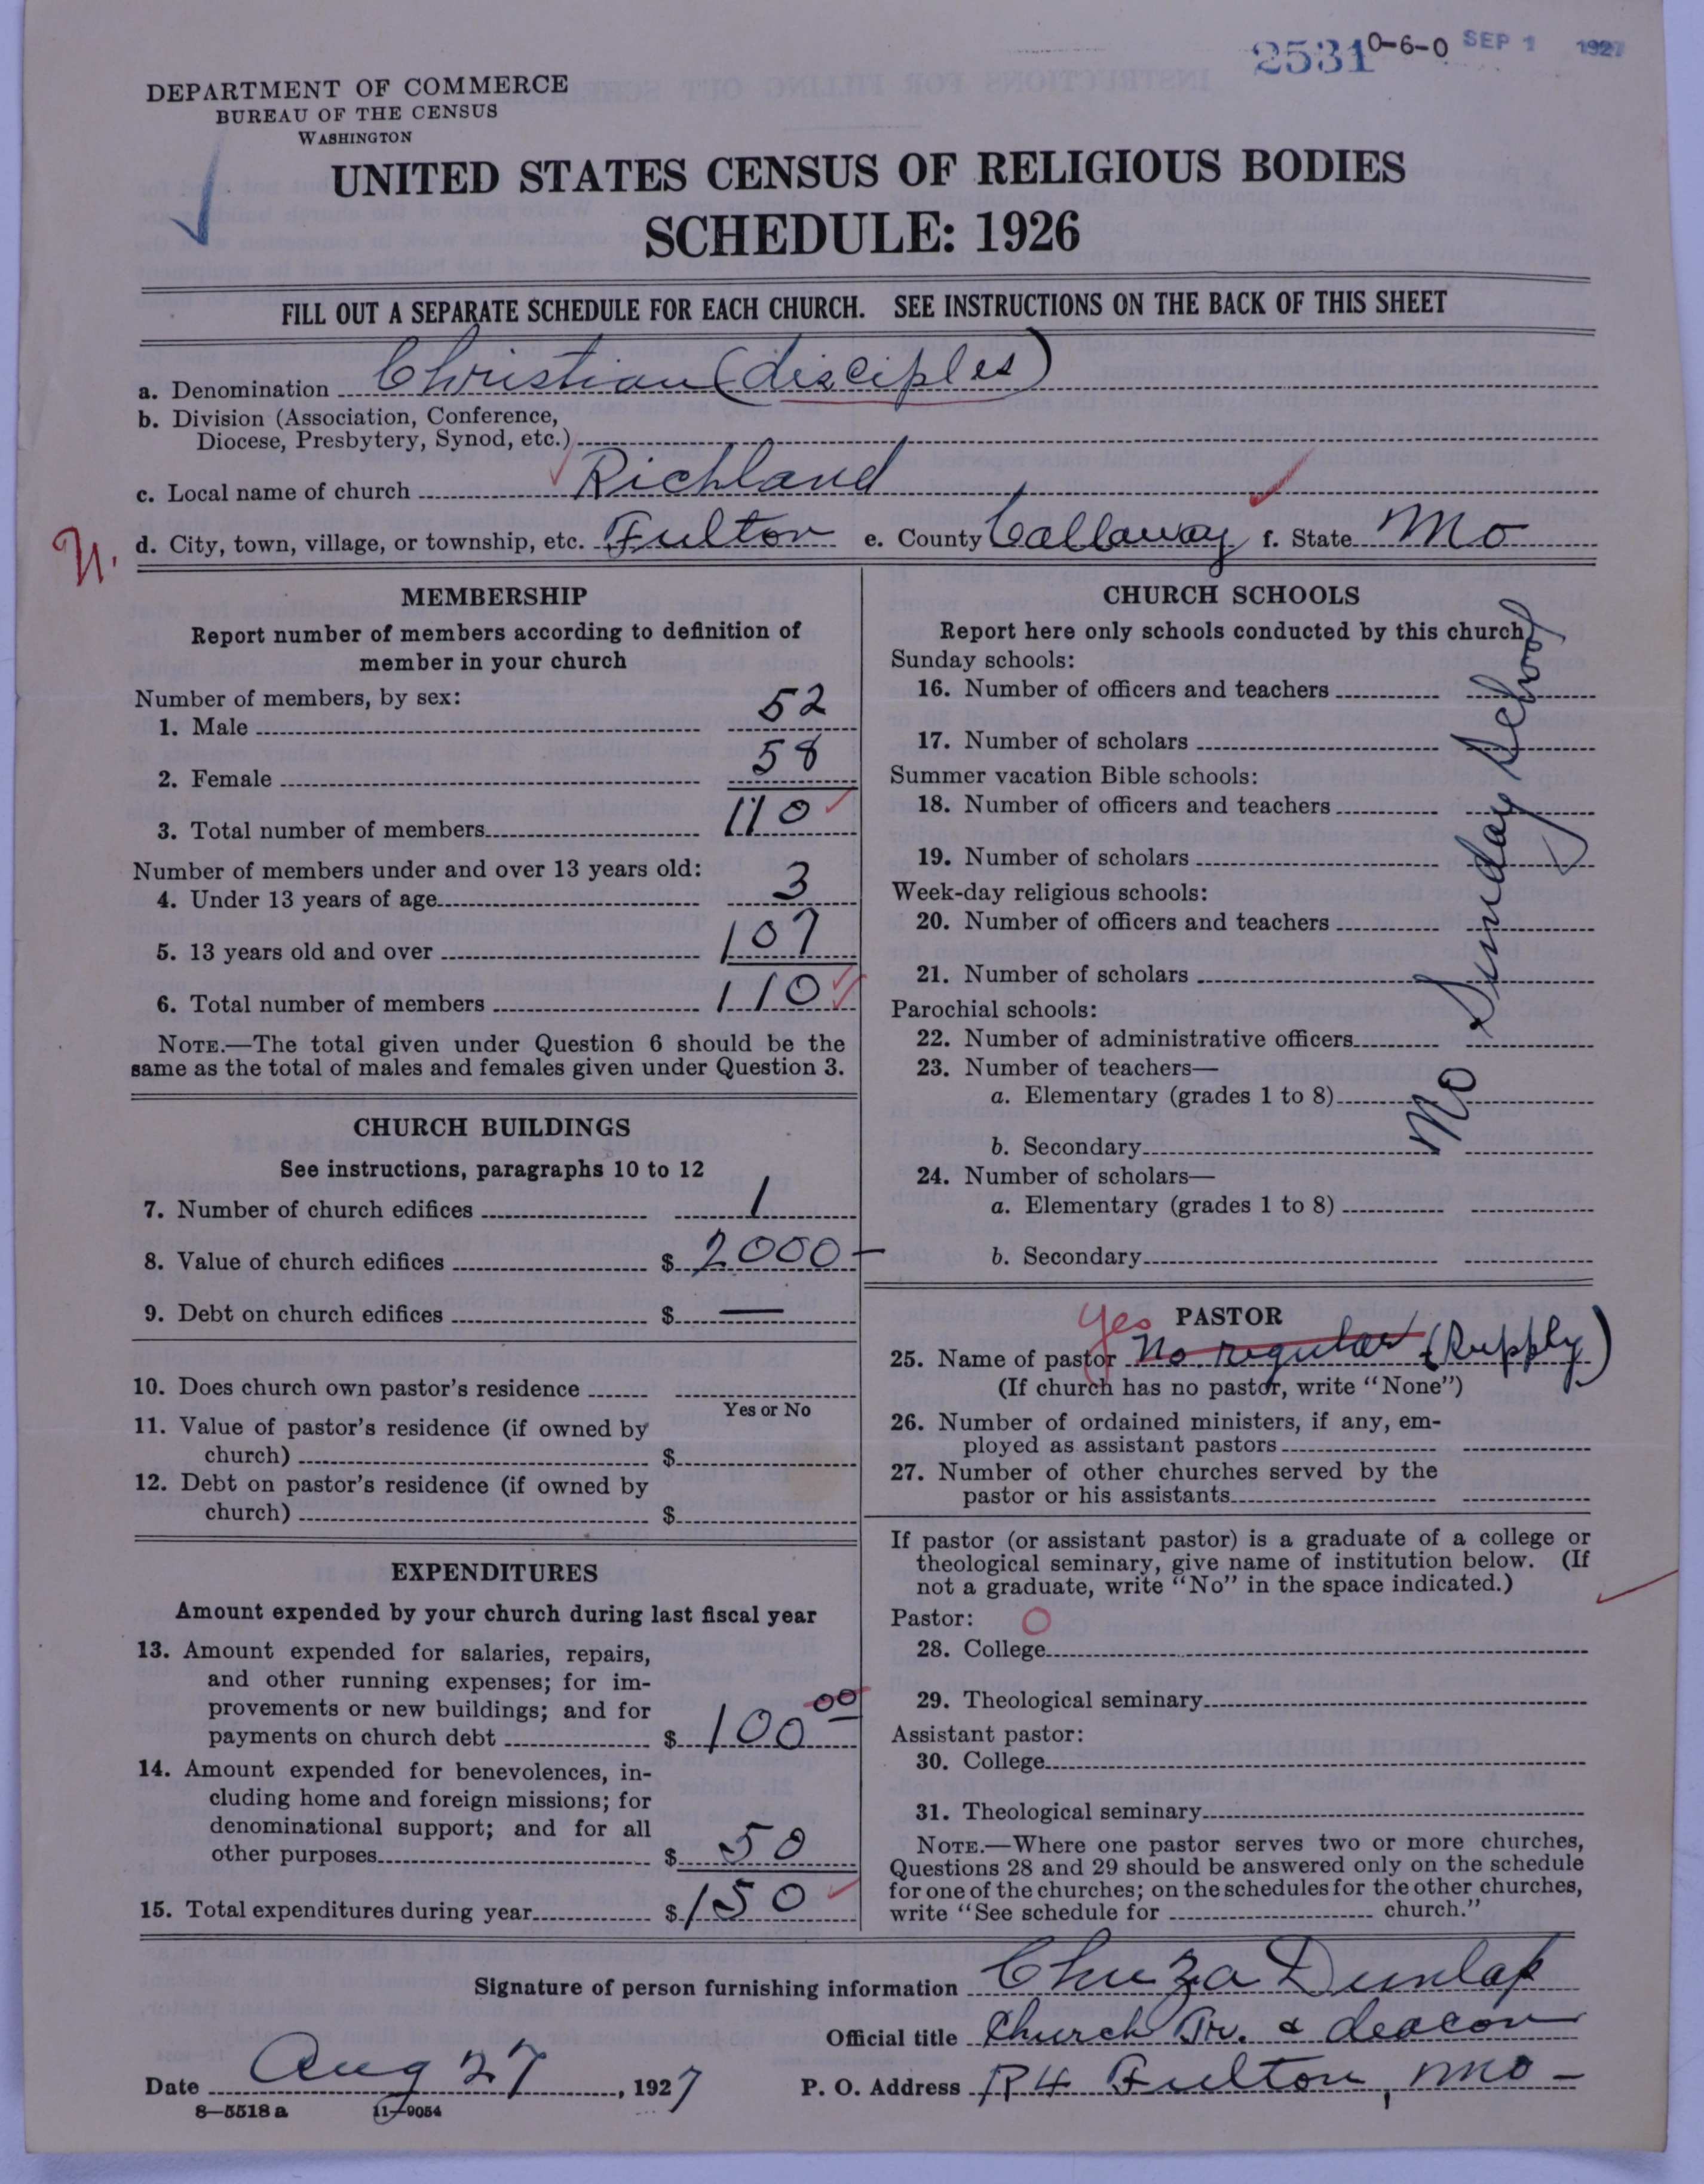 2531 0-6-0 SEP 1 1927
DEPARTMENT OF COMMERCE
BUREAU OF THE CENSUS
WASHINGTON
UNITED STATES CENSUS OF RELIGIOUS BODIES
SCHEDULE: 1926
FILL OUT A SEPARATE SCHEDULE FOR EACH CHURCH. SEE INSTRUCTIONS ON THE BACK OF THIS SHEET
a. Denomination Christian (disciples)
b. Division (Association, Conference,
Diocese, Presbytery, Synod, etc.)
c. Local name of church Richland
N. d. City, town, village, or township, etc. Fulton e. County Callaway f. State Mo
MEMBERSHIP
Report number of members according to definition of
member in your church
Number of members, by sex:
1. Male 52
2. Female 58
3. Total number of members 110
Number of members under and over 13 years old:
4. Under 13 years of age 3
5. 13 years old and over 107
6. Total number of members 110
NOTE.—The total given under Question 6 should be the
same as the total of males and females given under Question 3.
CHURCH BUILDINGS
See instructions, paragraphs 10 to 12
7. Number of church edifices 1
8. Value of church edifices $ 2000 —
9. Debt on church edifices $ —
10. Does church own pastor's residence
Yes or No
11. Value of pastor's residence (if owned by
church) $
12. Debt on pastor's residence (if owned by
church) $
EXPENDITURES
Amount expended by your church during last fiscal year
13. Amount expended for salaries, repairs,
and other running expenses; for im-
provements or new buildings; and for
payments on church debt $ 100 00
14. Amount expended for benevolences, in-
cluding home and foreign missions; for
denominational support; and for all
other purposes $ 50
15. Total expenditures during year $ 150
CHURCH SCHOOLS
Report here only schools conducted by this church
Sunday schools:
16. Number of officers and teachers
17. Number of scholars
Summer vacation Bible schools:
18. Number of officers and teachers
19. Number of scholars
Week-day religious schools:
20. Number of officers and teachers
21. Number of scholars
Parochial schools:
22. Number of administrative officers
23. Number of teachers—
a. Elementary (grades 1 to 8)
b. Secondary
24. Number of scholars—
a. Elementary (grades 1 to 8)
b. Secondary
No Sunday School
Yes PASTOR
25. Name of pastor No regular (Supply)
(If church has no pastor, write "None")
26. Number of ordained ministers, if any, em-
ployed as assistant pastors
27. Number of other churches served by the
pastor or his assistants
If pastor (or assistant pastor) is a graduate of a college or
theological seminary, give name of institution below. (If
not a graduate, write "No" in the space indicated.)
Pastor: O
28. College
29. Theological seminary
Assistant pastor:
30. College
31. Theological seminary
NOTE.—Where one pastor serves two or more churches,
Questions 28 and 29 should be answered only on the schedule
for one of the churches; on the schedules for the other churches,
write "See schedule for church."
Signature of person furnishing information Chuza Dunlap
Official title Church Tr. & deacon
Date Aug 27, 1927 P. O. Address R4 Fulton, Mo —
8—5518 a 11—9054